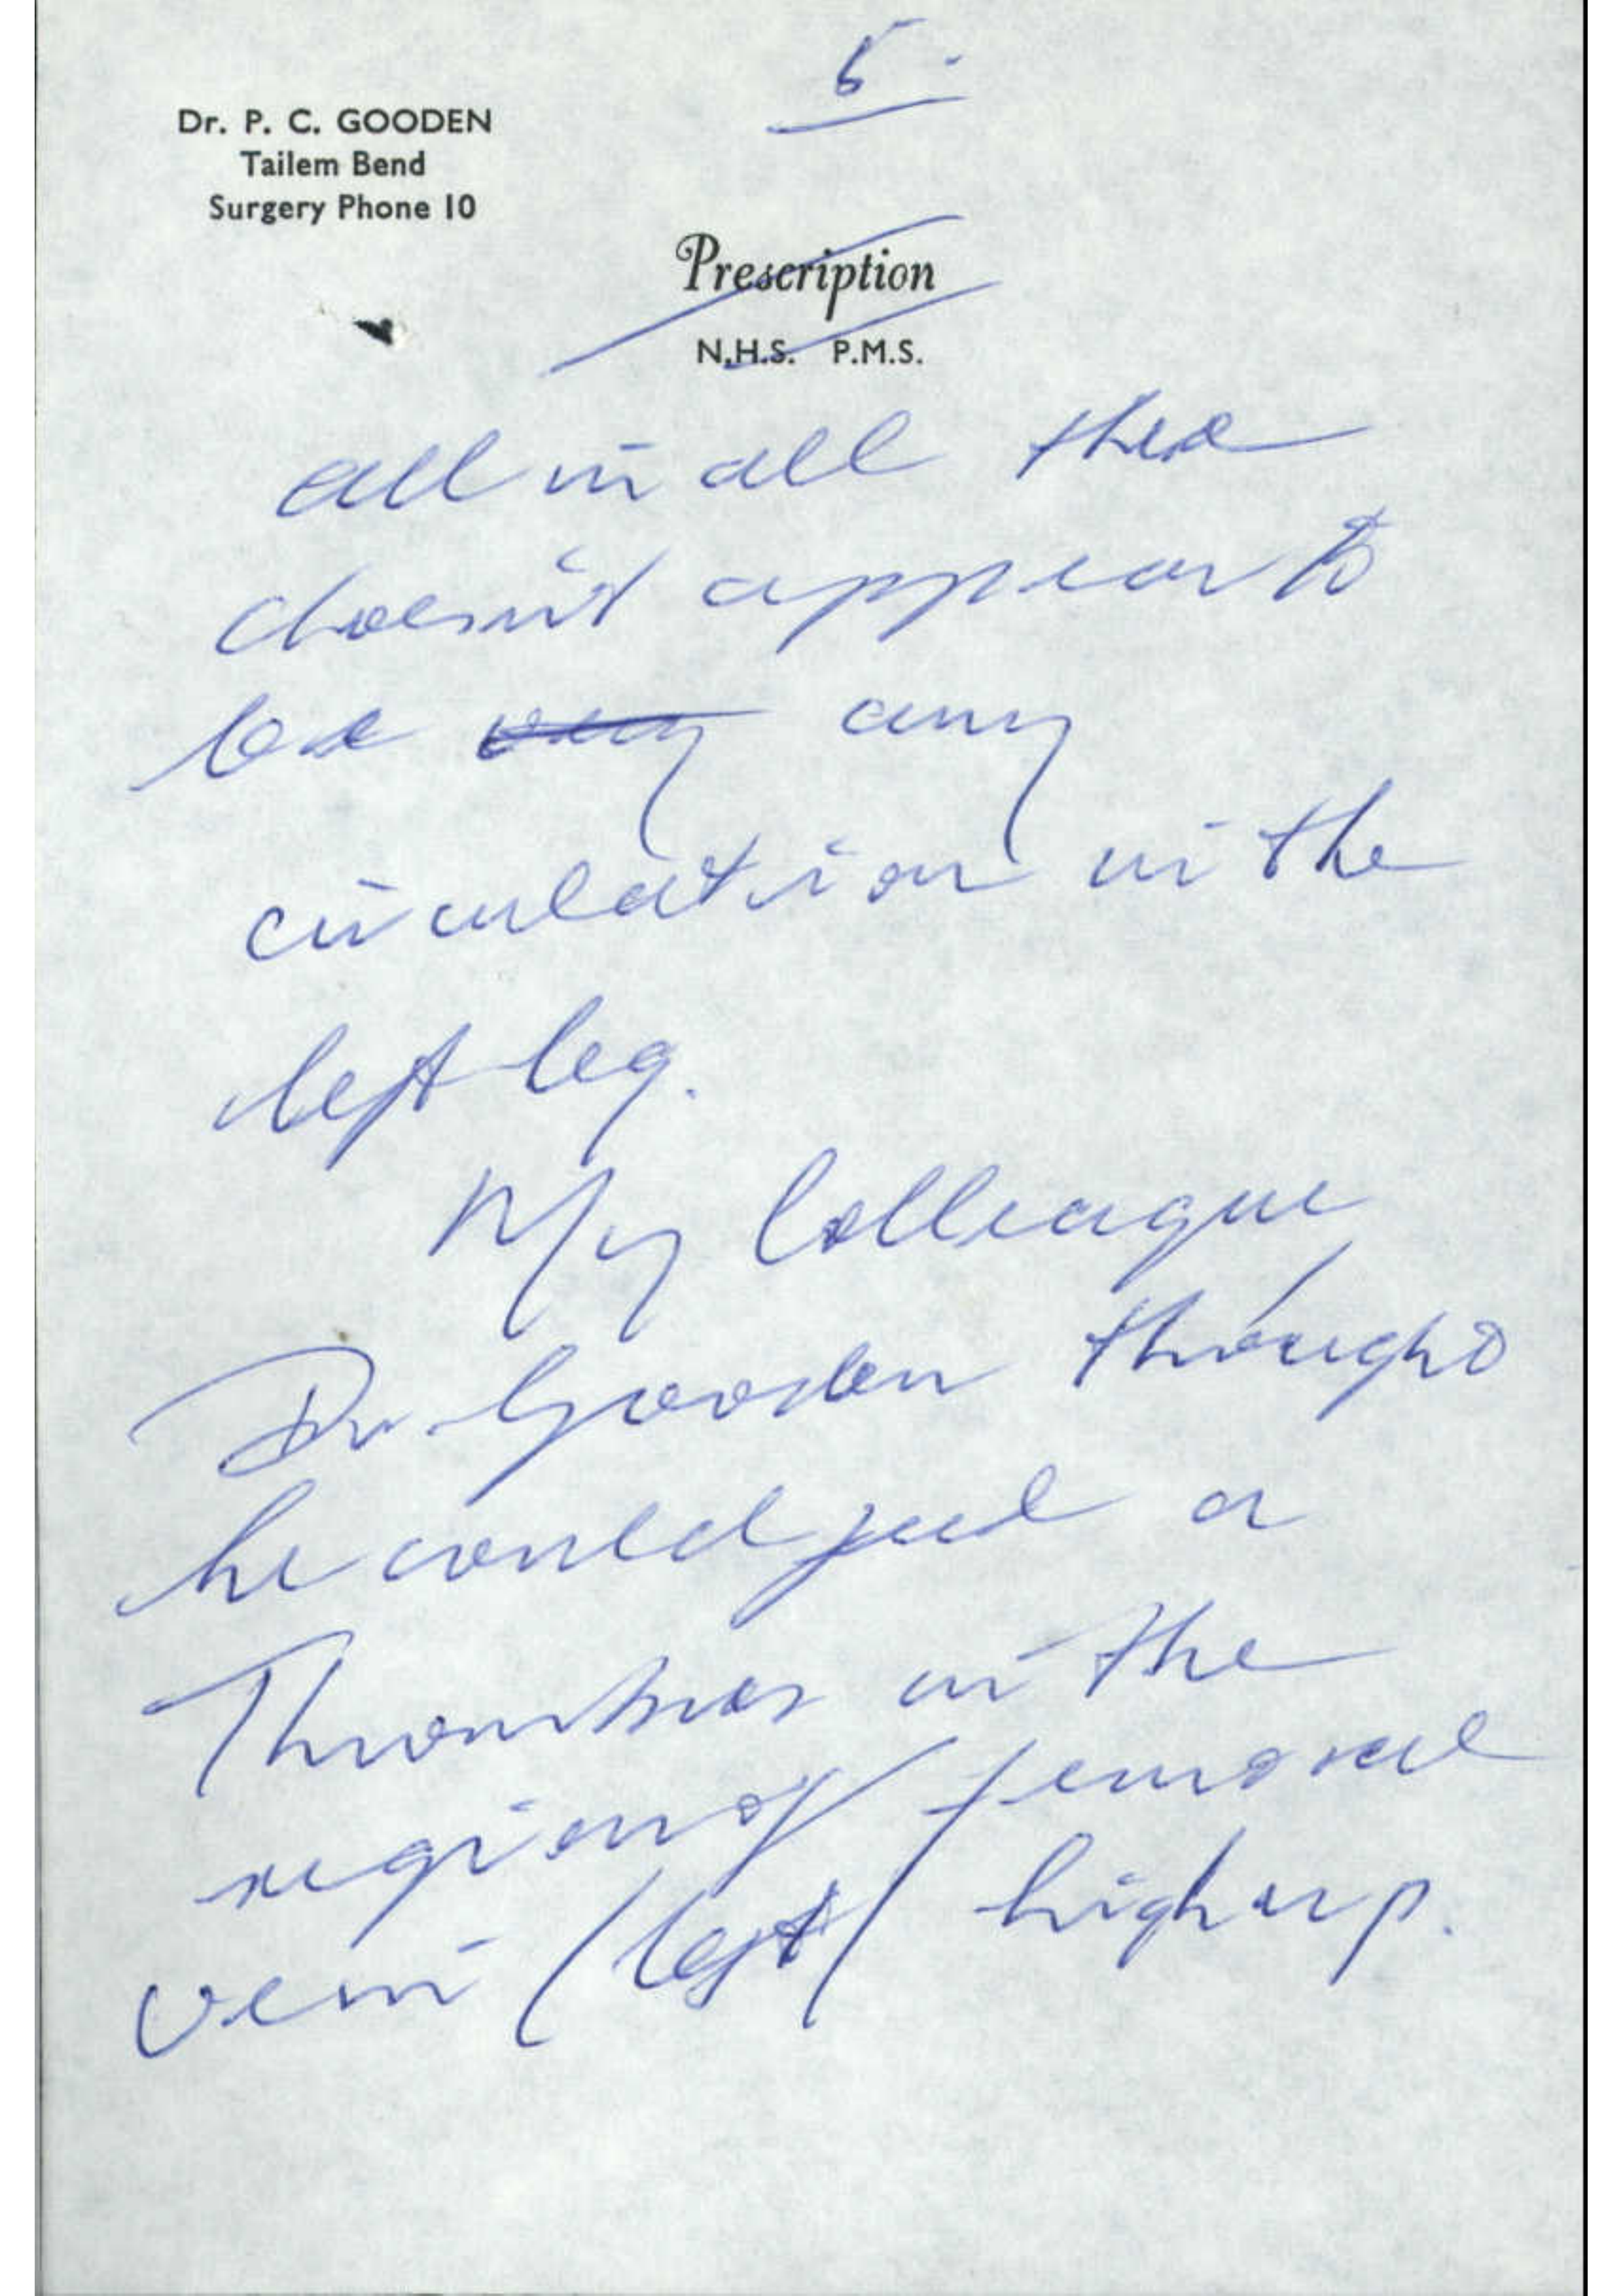 5.
Dr. P. C. GOODEN
Tailem Bend
Surgery Phone 10
Prescription
N.H.S. P.M.S.
all in all there
doesn't appear to
be very any
circulation in the
left leg.
My Colleague
Dr Gooden thought
he could feel a
Thrombus in the
region of femoral
vein (left) high up.